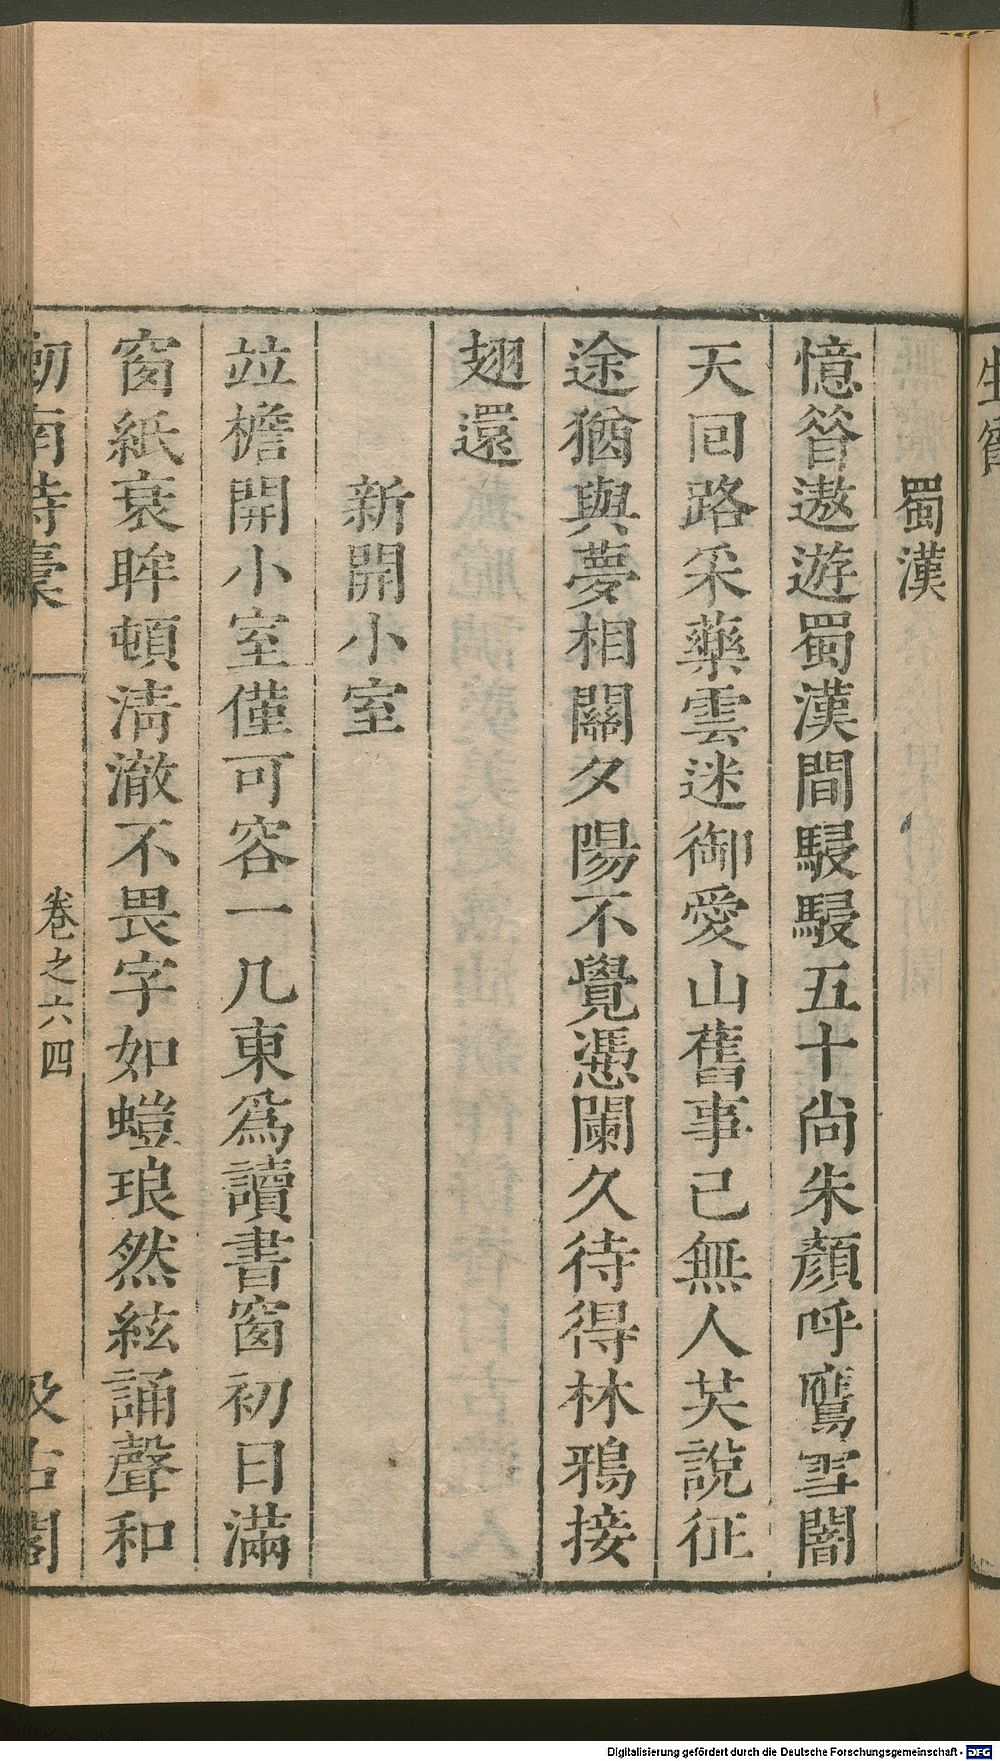 蜀漢
憶昝遨遊蜀漢間駸駸五十尚朱顏呼鷹雪闇
天回路采藥雲迷御愛山舊事已無人芡說征
途猶與夢相關夕陽不覺憑闌久待得林鴉接
翅還
新開小室
竝檐開小室僅可容一几東爲讀書窗初日滿
窗紙衰眸頓淸澈不畏字如螘琅然絃誦聲和
劍南詩稾
卷之六四
汲古閣
Digitalisierung gefördert durch die Deutsche Forschungsgemeinschaft - DFG